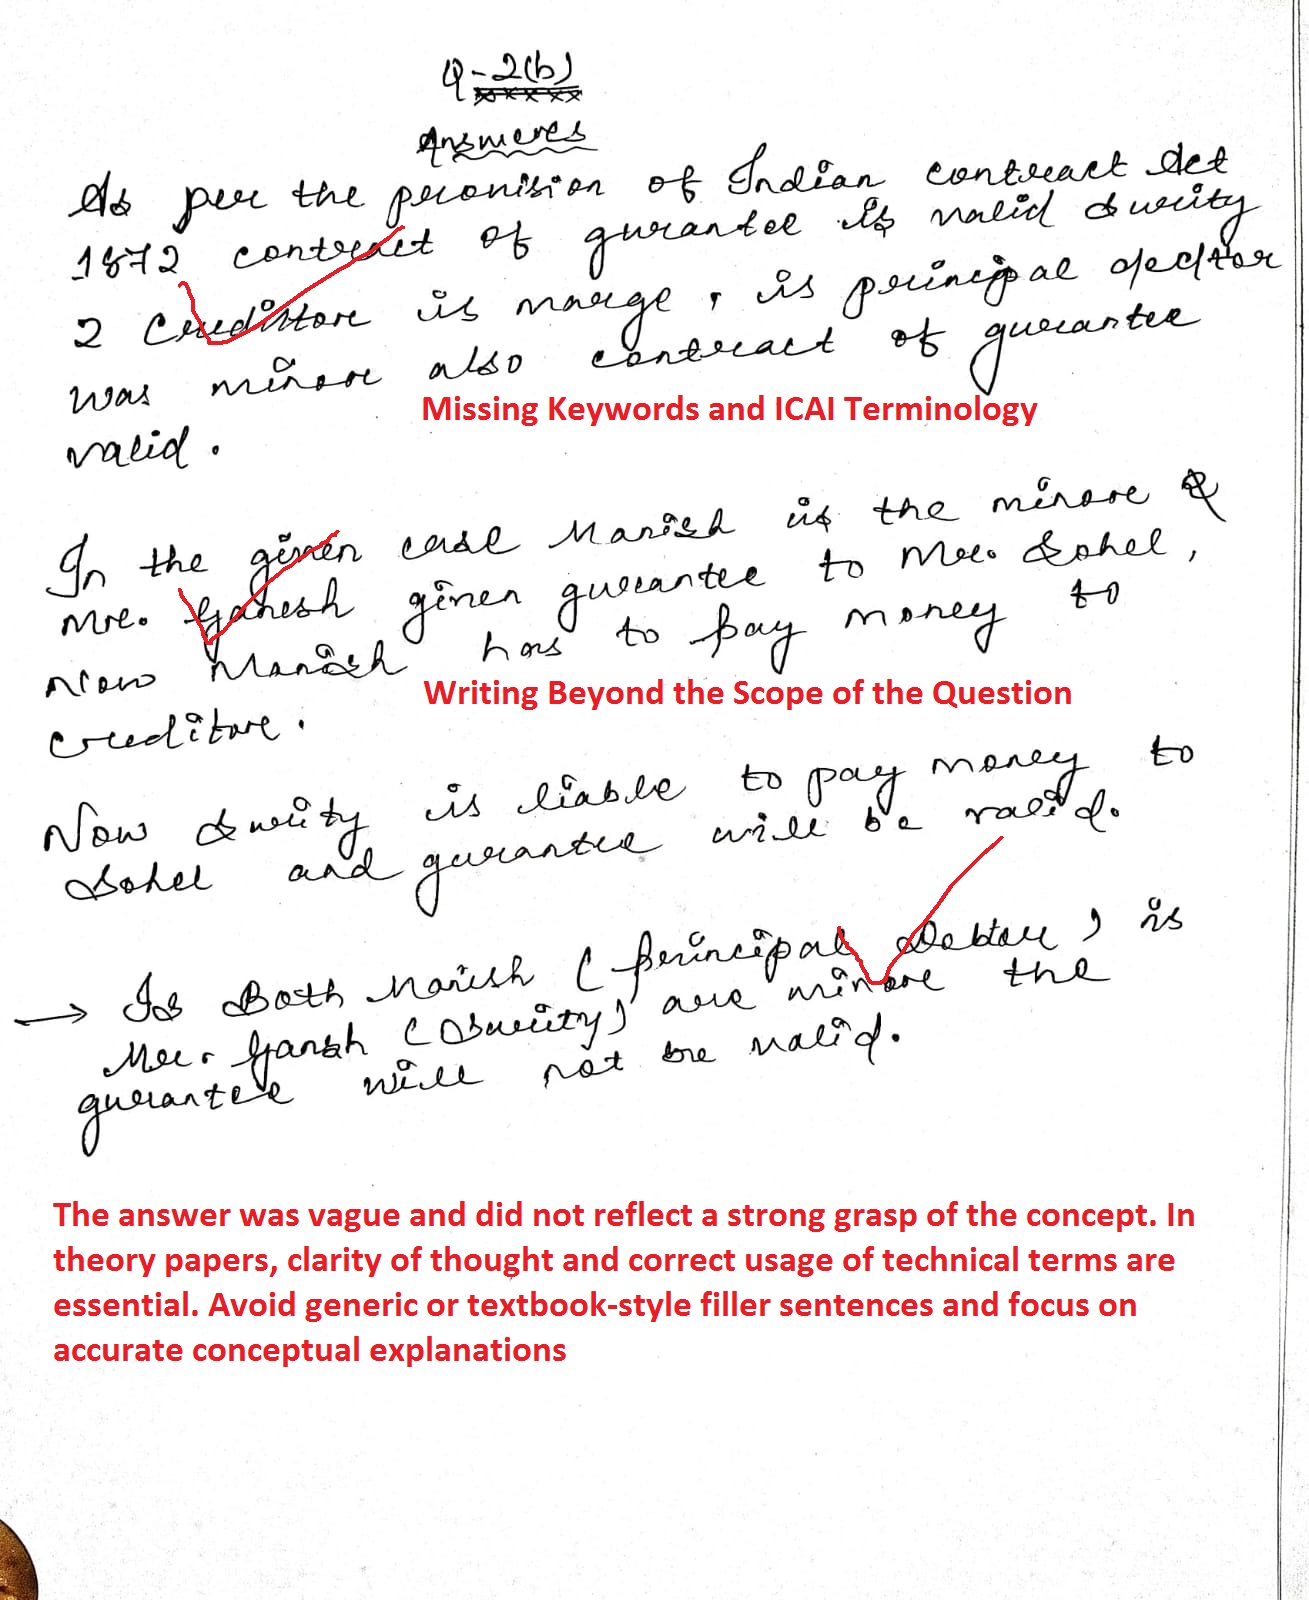 Q-2(b)
Answeres
As per the provision of Indian contract Act
1872 contract of gurantee is valid surity
2 Creditore is marge, is principal dector
was minore also contract of guerantee
valid.
Missing Keywords and ICAI Terminology
In the given case Manish is the minore &
Mr. Ganesh given guerantee to Mr. Sohel,
Now Manish has to pay money to
creditore.
Writing Beyond the Scope of the Question
Now surity is liable to pay money to
Sohel and guerantee will be valid.
→ Is Both Manish (principal Debtor) is
Mr. Gansh (Surity) are minore the
guerantee will not be valid.
The answer was vague and did not reflect a strong grasp of the concept. In
theory papers, clarity of thought and correct usage of technical terms are
essential. Avoid generic or textbook-style filler sentences and focus on
accurate conceptual explanations